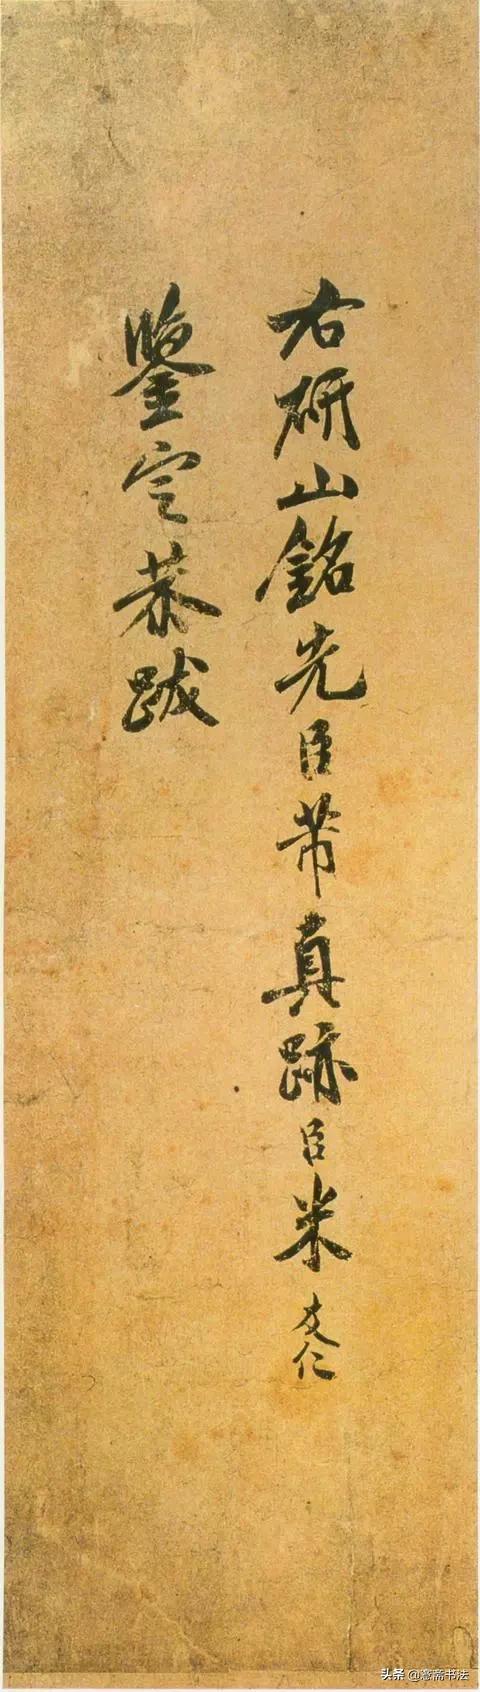 右研山銘先臣芾真跡臣米友仁
鑒定恭跋
头条@意斋书法